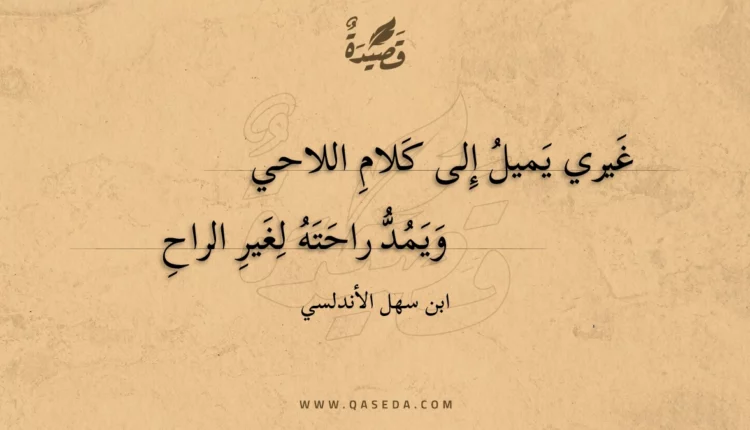 قَصِيدَةٌ
غَيري يَميلُ إِلى كَلامِ اللاحي
وَيَمُدُّ راحَتَهُ لِغَيرِ الراحِ
ابن سهل الأندلسي
WWW.QASEDA.COM